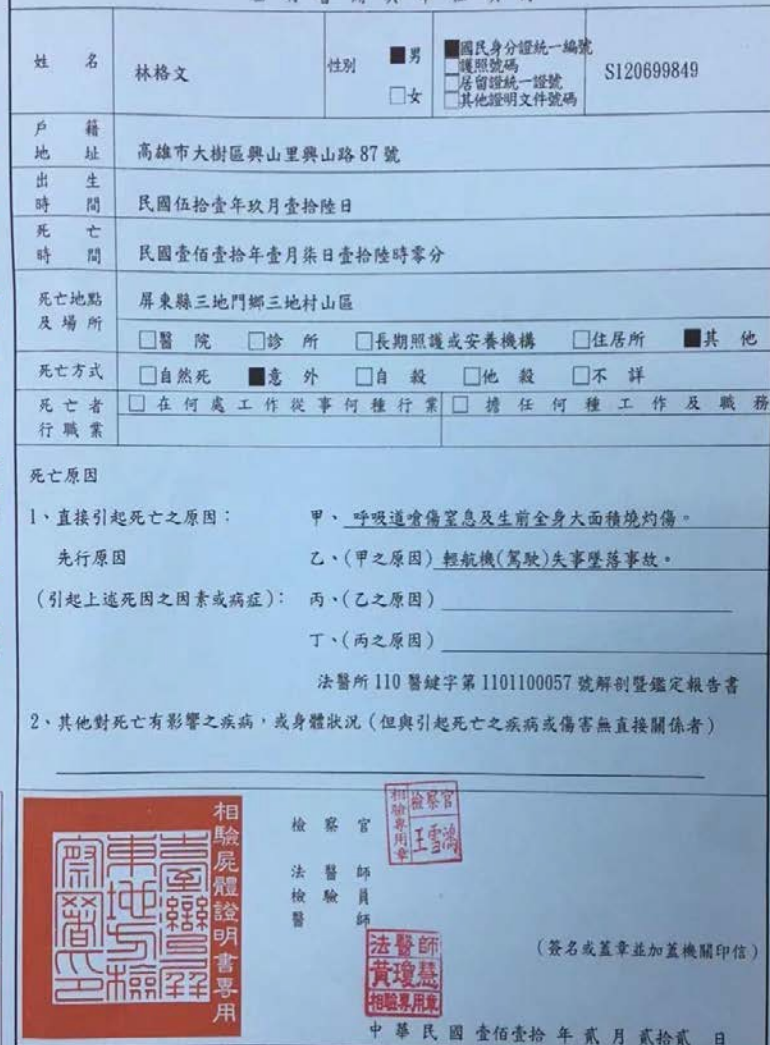 姓名 林格文 性別 ■男 □女 ■國民身分證統一編號 □護照號碼 □居留證統一證號 □其他證明文件號碼 S120699849
戶籍地址 高雄市大樹區興山里興山路87號
出生時間 民國伍拾壹年玖月壹拾陸日
死亡時間 民國壹佰壹拾年壹月柒日壹拾陸時零分
死亡地點及場所 屏東縣三地門鄉三地村山區
□醫院 □診所 □長期照護或安養機構 □住居所 ■其他
死亡方式 □自然死 ■意外 □自殺 □他殺 □不詳
死亡者行職業 □在何處工作從事何種行業 □擔任何種工作及職務
死亡原因
1、直接引起死亡之原因： 甲、呼吸道嗆傷窒息及生前全身大面積燒灼傷。
先行原因 乙、(甲之原因)輕航機(駕駛)失事墜落事故。
(引起上述死因之因素或病症)： 丙、(乙之原因)
丁、(丙之原因)
法醫所110醫鍵字第1101100057號解剖暨鑑定報告書
2、其他對死亡有影響之疾病，或身體狀況(但與引起死亡之疾病或傷害無直接關係者)
相驗屍體證明書專用
臺灣屏東地方檢察署印
檢察官
檢察官 王雪鴻 相驗專用章
法醫師
檢驗員
醫師
法醫師
黃瓊慧
相驗專用章
(簽名或蓋章並加蓋機關印信)
中華民國壹佰壹拾年貳月貳拾貳日